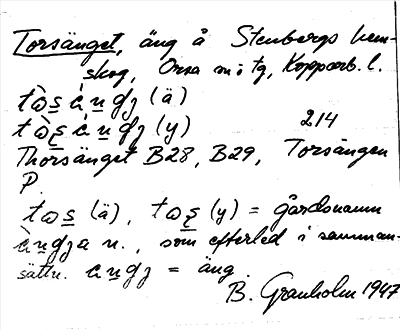 Torsänget, äng å Stenbergs hem-
skog, Orsa m. o tg, Kopparb. l.
(ä)
(y) 214
Thorsänget B28, B29, Torsängen
P.
(ä), (y) = gårdsnamn
n., som efterled i samman-
sättn. = äng.
B. Granholm 1947